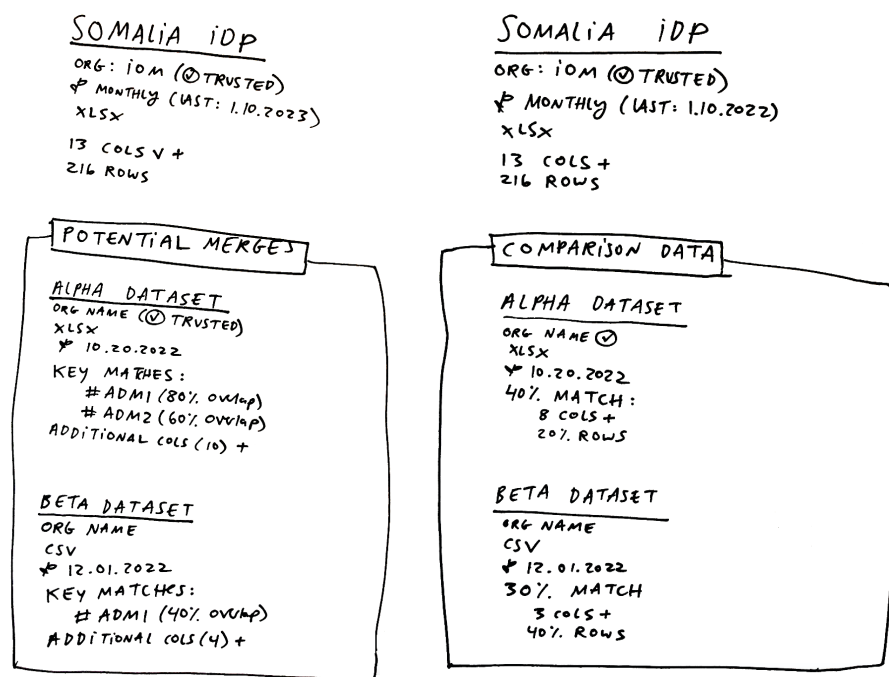 SOMALIA IDP
ORG: IOM (✓ TRUSTED)
MONTHLY (LAST: 1.10.2023)
XLSX
13 COLS V +
216 ROWS
POTENTIAL MERGES
ALPHA DATASET
ORG NAME (✓ TRUSTED)
XLSX
10.20.2022
KEY MATCHES:
# ADM1 (80% OVERLAP)
# ADM2 (60% OVERLAP)
ADDITIONAL COLS (10) +
BETA DATASET
ORG NAME
CSV
12.01.2022
KEY MATCHES:
# ADM1 (40% OVERLAP)
ADDITIONAL COLS (4) +
SOMALIA IDP
ORG: IOM (✓ TRUSTED)
MONTHLY (LAST: 1.10.2022)
XLSX
13 COLS +
216 ROWS
COMPARISON DATA
ALPHA DATASET
ORG NAME ✓
XLSX
10.20.2022
40% MATCH:
8 COLS +
20% ROWS
BETA DATASET
ORG NAME
CSV
12.01.2022
30% MATCH
3 COLS +
40% ROWS